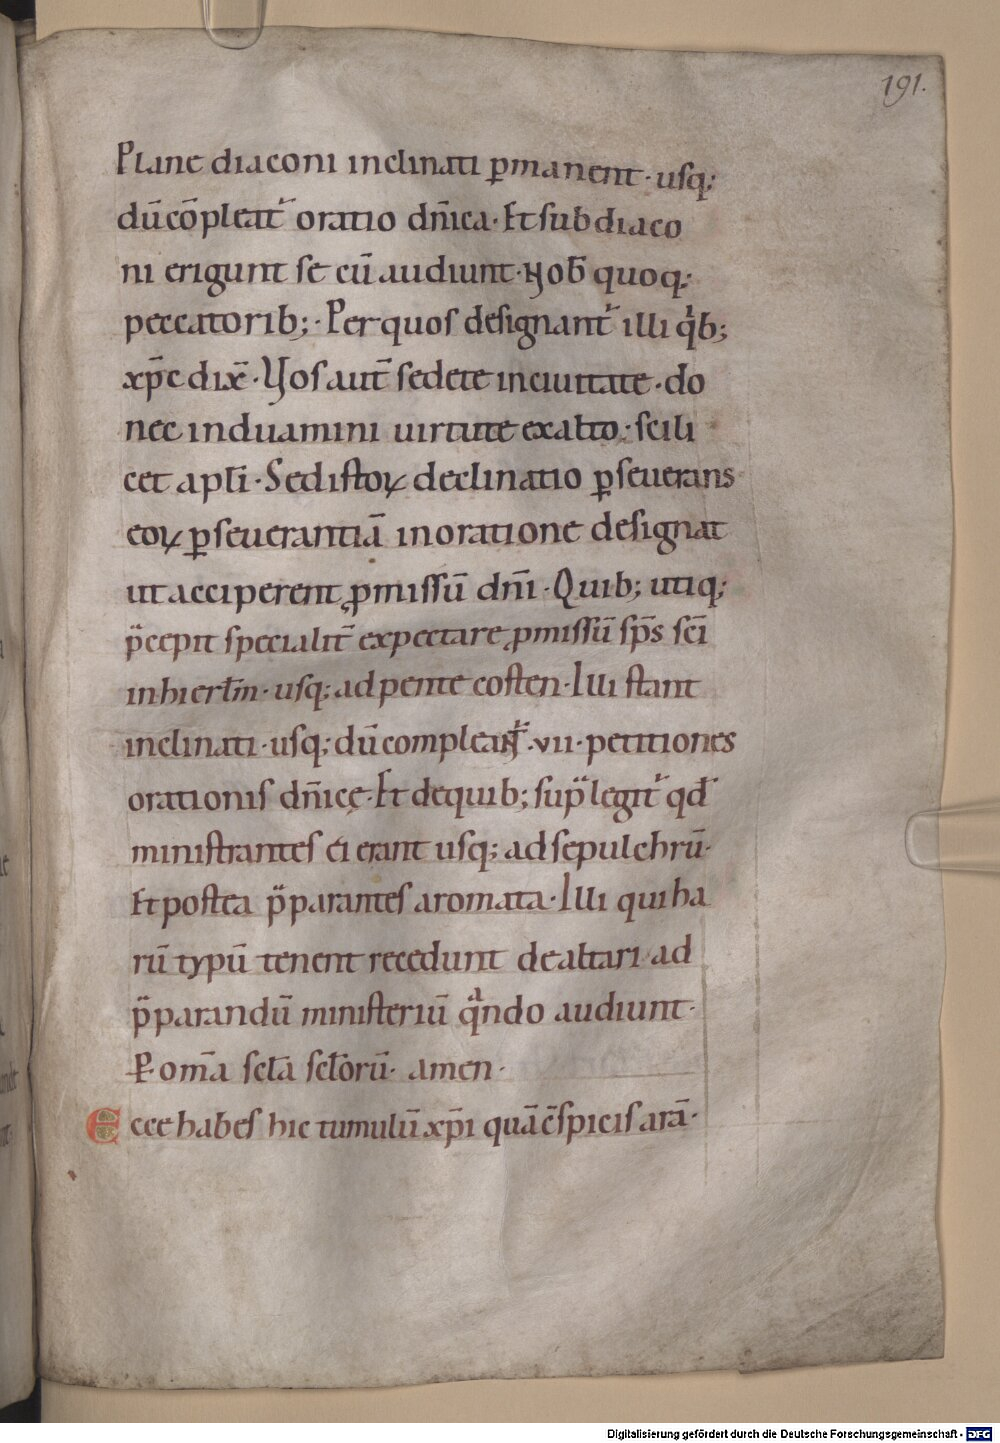 191.
Plane diaconi inclinati ꝑmanent · usq;
dū cōpleat᷑ oratio dn̄ica · Et subdiaco
ni erigunt se cū audiunt · Nob̄ quoq;
peccatorib; · Per quos designant᷑ illi qͥb;
xp̄c dix̄ · Vos aut̄ sedete in ciuitate · do
nec induamini uirtute ex alto · scili
cet apl̄i · Sed istoꝝ declinatio ꝑseuerans
eoꝝ ꝑseuerantiā in oratione designat
ut acciperent ꝓmissū dn̄i · Quib; utiq;
p̄cepit specialit̄ expectare ꝓmissū sp̄s sc̄i
in hierl̄m · usq; ad pentecosten · Illi stant
inclinati · usq; dū compleant᷑ · vii · petitiones
orationis dn̄icę · Et de quib; sup̄ legit᷑ qđ
ministrantes ei erant usq; ad sepulchrū ·
Et postea p̄parantes aromata · Illi qui ha
rū typū tenent recedunt de altari ad
p̄parandū ministeriū qͣndo audiunt ·
P̱ · om̄a scl̄a scl̄orū · amen ·
Ecce habes hic tumulū xp̄i quā c̄spicis arā ·
Digitalisierung gefördert durch die Deutsche Forschungsgemeinschaft - DFG